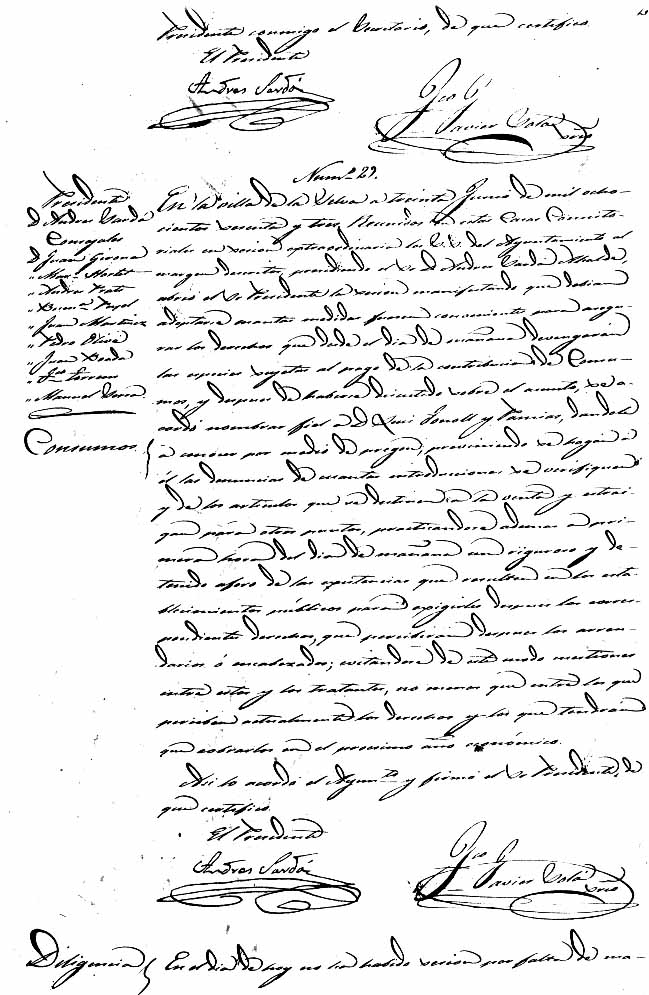 Presidente conmigo el Secretario, de que certifico.
El Presidente
Andres Sardá
Fco
Javier
Srio
Num.º 29.
Presidente
D. Andres Sarda
Concejales
D. Juan Girona
" Pedro Prats
" Juan Martinez
" Pedro Oliva
" Juan
" Manuel
Consumos
En la villa de la Selva a treinta Junio de mil ocho-
cientos sesenta y tres, Reunidos en estas Casas Consisto-
riales en sesion extraordinaria los S.S. del Ayuntamiento al
margen descritos, presidiendo el Sr. D. Andres Sardá Alcalde,
abrió el Sr. Presidente la sesion manifestando que debian
adoptarse cuantas medidas fuesen convenientes para asegu-
rar los derechos que desde el dia de mañana devengarán
las especies sujetas al pago de la contribucion de Consu-
mos, y despues de haberse discutido sobre el asunto, se a-
cordó nombrar fiel a D. Luis y dandole
a conocer por medio de pregon, previniendo se hagan a
él las denuncias de cuantas introducciones se verifiquen
y de los articulos que se destinen a la venta y estrai-
gan para otros puntos, practicandose ademas a pri-
mera hora del dia de mañana un riguroso y de-
tenido aforo de las existencias que resulten en los esta-
blecimientos públicos para exigirles despues los corres-
pondientes derechos, que percibirán despues los arren-
datarios ó encabezados; evitandose de este modo cuestiones
entre estos y los tratantes, no menos que entre los que
perciben actualmente los derechos y los que tendran
que cobrarlos en el procsimo año económico.
Asi lo acordó el Ayunt.º y firmó el Sr. Presidente, de
que certifico.
El Presidente
Andres Sardá
Fco
Javier
Srio
Diligencia } En el dia de hoy no ha habido sesion por falta de ma-